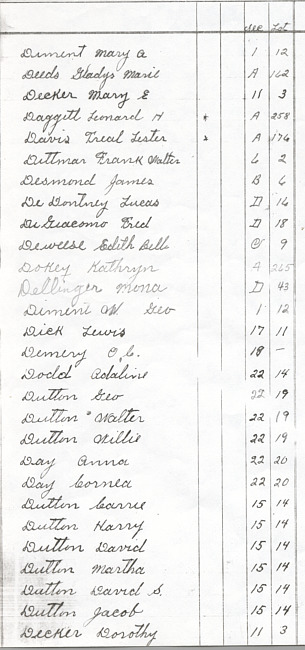 Sec Lot
Diment Mary A 1 12
Deeds Gladys Marie A 162
Decker Mary E 11 3
Daggett Leonard H * A 258
Davis Treal Lester A 176
Dittmar Frank Walter 6 2
Desmond James B 6
De Dontney Lucas D 16
Di Giacomo Fred D 18
Deweese Edith Bell 9
Dokey Kathryn A 265
Dellinger Mona D 43
Diment W Geo 1 12
Dick Lewis 17 11
Demery O. C. 18 -
Dodd Adaline 22 14
Dutton Geo 22 19
Dutton Walter 22 19
Dutton Willie 22 19
Day Anna 22 20
Day Cornea 22 20
Dutton Carrie 15 14
Dutton Harry 15 14
Dutton David 15 14
Dutton Martha 15 14
Dutton David S. 15 14
Dutton Jacob 15 14
Decker Dorothy 11 3